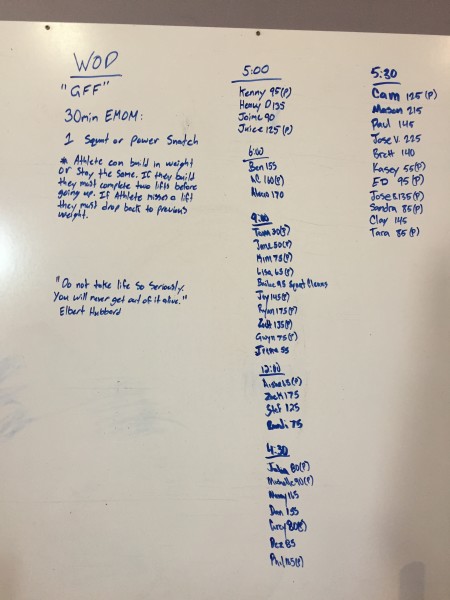 WOD
"GFF"
30min EMOM:
1 Squat or Power Snatch
* Athlete can build in weight
or stay the same. If they build
they must complete two lifts before
going up. If Athlete misses a lift
they must drop back to previous
weight.
"Do not take life so seriously.
You will never get out of it alive."
Elbert Hubbard
5:00
Kenny 95(P)
Henry D 135
Jaime 90
Juice 125(P)
6:00
Ben 155
160(P)
170
9:00
30(P)
50(P)
Kim 75(P)
Lisa 65(P)
95 Squat Cleans
Jay 145(P)
Ryan 175(P)
135(P)
Gwyn 75(P)
55
12:00
65(P)
Zack 175
125
Randi 75
4:30
80(P)
Michelle 90(P)
115
Dan 155
80(P)
Dez 85
Phil 115(P)
5:30
Cam 125 (P)
Mason 215
Paul 145
Jose V. 225
Brett 140
Kasey 55(P)
ED 95(P)
Jose B. 135(P)
Sandra 85(P)
Clay 145
Tara 85(P)